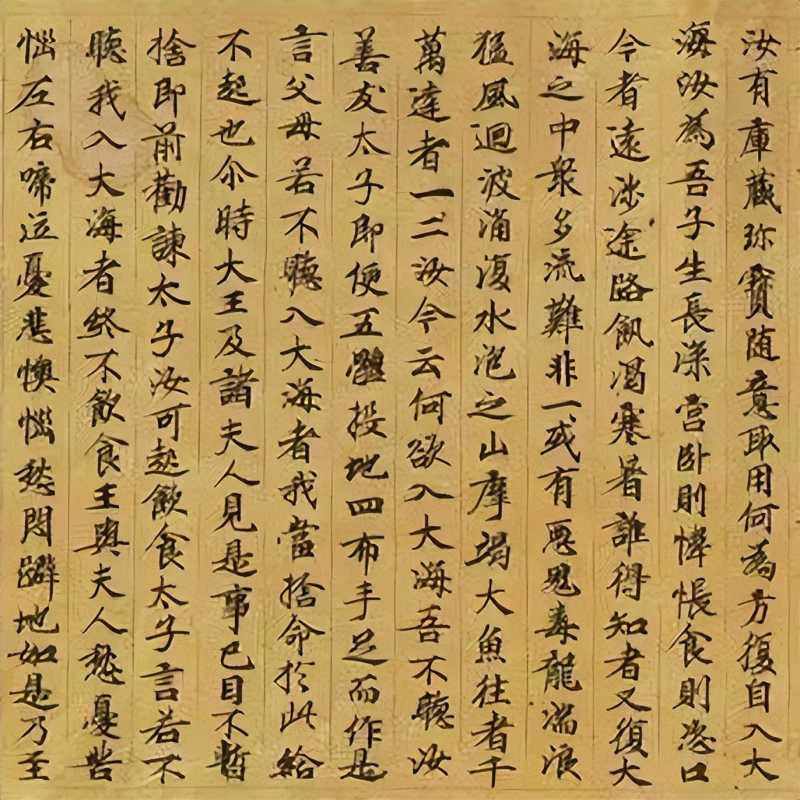 汝有庫藏珎寶随意取用何為方復自入大
海汝為吾子生長深宫卧則幃帳食則恣口
今者遠涉途路飢渴寒暑誰得知者又復大
海之中衆多流難非一或有惡鬼毒龍湍浪
猛風迴波涌復水泡之山摩竭大魚往者千
萬達者一二汝今云何欲入大海吾不聽汝
善友太子即便五體投地四布手足而作是
言父母若不聽入大海者我當捨命於此給
不起也尒時大王及諸夫人見是事已目不暫
捨即前勸諫太子汝可起飲食太子言若不
聽我入大海者終不飲食王與夫人愁憂苦
惱左右啼泣憂悲懊惱愁悶躃地如是乃至